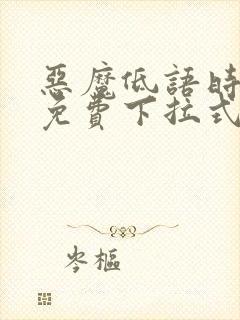 惡魔低語時
免費下拉式
岑樞